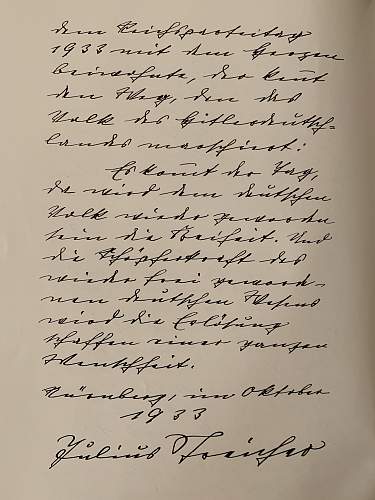 dem Reichsparteitag
1933 mit dem Herzen
beiwohnte, der kennt
den Weg, den das
Volk des Hitlerdeutsch-
landes marschiert:
Es kommt der Tag,
da wird dem deutschen
Volk wieder geworden
sein die Freiheit. Und
die Schöpferkraft des
wieder frei geword-
nen deutschen Wesens
wird die Erlösung
schaffen einer ganzen
Menschheit.
Nürnberg, im Oktober
1933
Julius Streicher